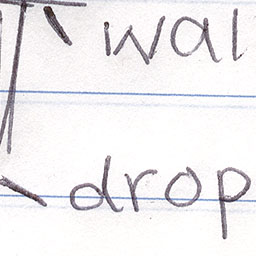 wal
drop